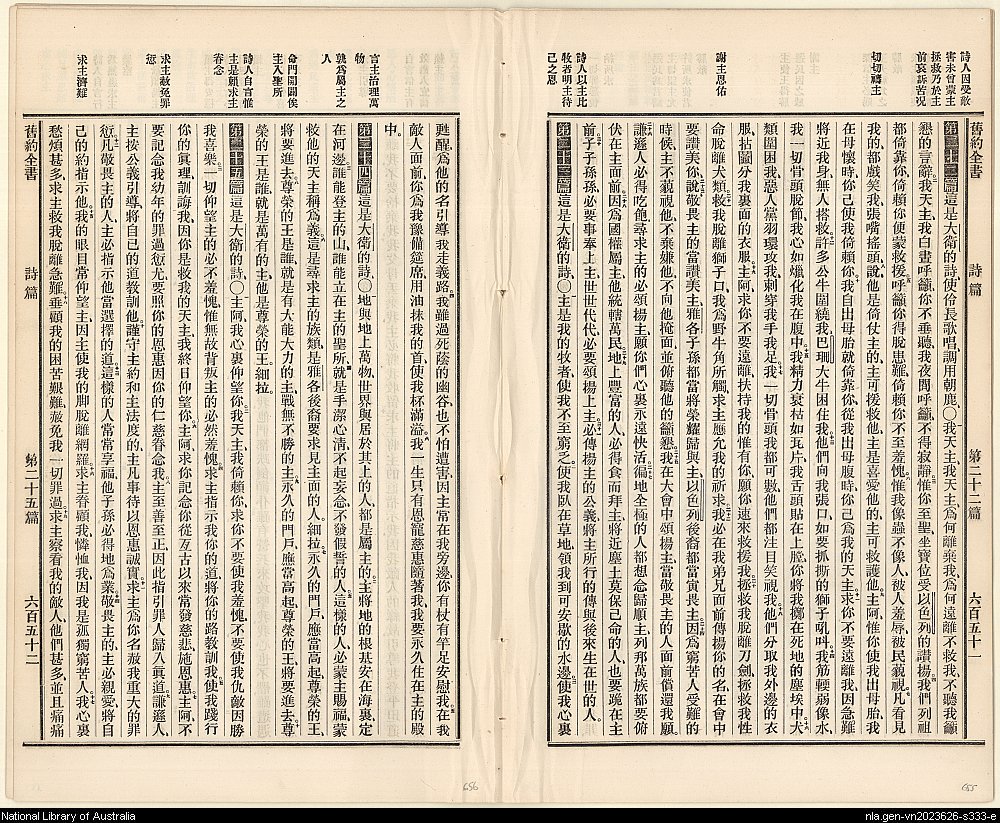 詩人因受敵
害未曾蒙主
拯救乃於主
前哀訴苦況
切切禱主
謝主恩佑
詩人以主比
牧者明主待
己之恩
舊約全書 詩篇 第二十二篇 六百五十一
第二十二篇 這是大衛的詩使伶長歌唱調用朝鹿〇我天主我天主爲何離棄我爲何遠離不救我不聽我籲
懇的言辭我天主我白晝呼籲你不垂聽我夜間呼籲不得寂靜惟你至聖坐寶位受以色列的讚揚我們列祖
都倚靠你倚賴你便蒙救援呼籲你得脫患難倚賴你不至羞愧惟我像蟲不像人被人羞辱被民藐視凡看見
我的都戲笑我張嘴搖頭說他是倚仗主的主可援救他主是喜愛他的主可救護他主阿惟你使我出母胎我
在母懷時你已使我倚賴你我自出母胎就倚靠你從我出母腹時你已爲我的天主求你不要遠離我因急難
將近我身無人搭救許多公牛圍繞我巴珊大牛困住我他們向我張口如要抓撕的獅子吼叫我筋輭弱像水
我一切骨頭脫節我心如蠟化我在腹中我精力衰枯如瓦片我舌頭貼在上膛你將我擲在死地的塵埃中犬
類圍困我惡人黨羽環攻我刺穿我手我足我一切骨頭我都可數他們都注目笑視我他們分取我外邊的衣
服拈鬮分我裏面的衣服主阿求你不要遠離扶持我的惟有你願你速來救援我拯救我脫離刀劍拯救我性
命脫離犬類救我脫離獅子口我爲野牛角所觸求主應允我的祈求我必在我弟兄面前傳揚你的名在會中
要讚美你說敬畏主的當讚美主雅各子孫都當將榮耀歸與主以色列後裔都當寅畏主因爲窮苦人受難的
時候主不藐視他不棄嫌他不向他掩面並俯聽他的籲懇我在大會中頌揚主當敬畏主的人面前償還我願
謙遜人必得吃飽尋求主的必頌揚主願你們心裏永遠快活徧地全極的人都想念歸順主列邦萬族都要俯
伏在主面前因爲國權屬主他統轄萬民地上豐富的人必得食而拜主將近塵土莫保己命的人也要跪在主
前子子孫孫必要事奉上主世世代代必要頌揚上主必傳揚主的公義將主所行的傳與後來生在世的人
第二十三篇 這是大衛的詩〇主是我的牧者使我不至窮乏便我臥在草地領我到可安歇的水邊使我心裏
言主治理萬
物
孰爲屬主之
人
命門開闢俟
主入聖所
詩人自言惟
主是賴求主
眷念
求主赦免罪
愆
求主濟難
甦醒爲他的名引導我走義路我雖過死蔭的幽谷也不怕遭害因主常在我旁邊你有杖有竿足安慰我在我
敵人面前你爲我豫備筵席用油抹我的首使我杯滿溢我一生只有恩寵慈惠隨著我我要永久住在主的殿
中
第二十四篇 這是大衛的詩〇地與地上萬物世界與居於其上的人都是屬主的主將地的根基安在海裏定
在河邊誰能登主的山誰能立在主的聖所就是手潔心清不起妄念不發假誓的人這樣的人必蒙主賜福蒙
救他的天主稱爲義這是尋求主的族類是雅各後裔要求見主面的人細拉永久的門戶應當高起尊榮的王
將要進去尊榮的王是誰就是有大能大力的主戰無不勝的主永久的門戶應當高起尊榮的王將要進去尊
榮的王是誰就是萬有的主他是尊榮的王細拉
第二十五篇 這是大衛的詩〇主阿我心裏仰望你我天主我倚賴你求你不要使我羞愧不要使我仇敵因勝
我喜樂一切仰望主的必不羞愧惟無故背叛主的必然羞愧求主指示我你的道將你的路教訓我使我踐行
你的眞理訓誨我因你是救我的天主我終日仰望你主阿求你記念你從亙古以來常發慈悲施恩惠主阿不
要記念我幼年的罪過愆尤要照你的恩惠因你的仁慈眷念我主至善至正因此指引罪人歸入眞道謙遜人
主按公義引導將自己的道敎訓他謹守主約和主法度的主凡事待以恩惠誠實求主爲你名赦我重大的罪
愆凡敬畏主的人主必指示他當選擇的道這樣的人常常享福他子孫必得地爲業敬畏主的主必親愛將自
己的約指示他我的眼目常仰望主因主使我的脚脫離網羅求主眷顧我憐恤我因我是孤獨窮苦人我心裏
愁煩甚多求主救我脫離急難垂顧我的困苦艱難赦免我一切罪過求主察看我的敵人他們甚多並且痛痛
舊約全書 詩篇 第二十五篇 六百五十二
656
655
National Library of Australia
nla.gen-vn2023626-s333-e